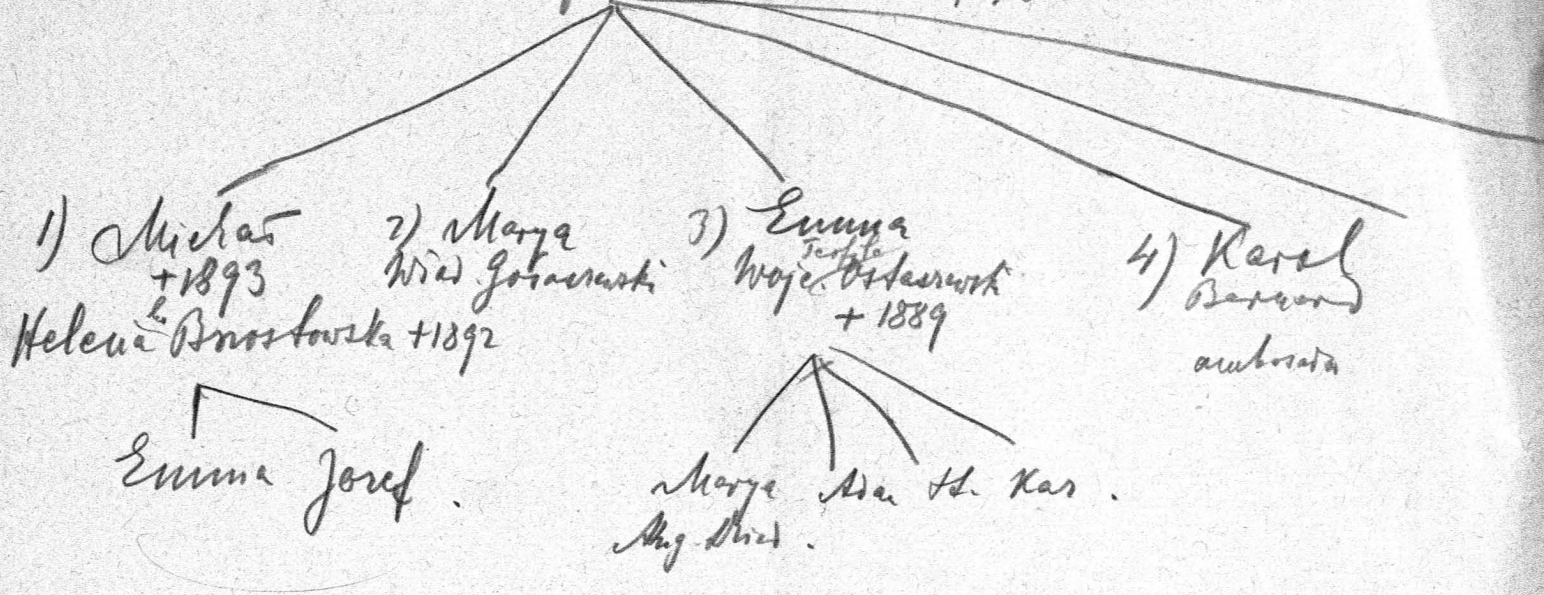 1) Michał
+1893
Helena hr Brzostowska +1892
Emma Józef.
2) Marya
Wład. Gołaszewski
3) Emma
Teofila
Wojc. Ostaszewski
+ 1889
Marya Ada St. Kas.
Aug. Dzied.
4) Karol
Bernard
ambasada